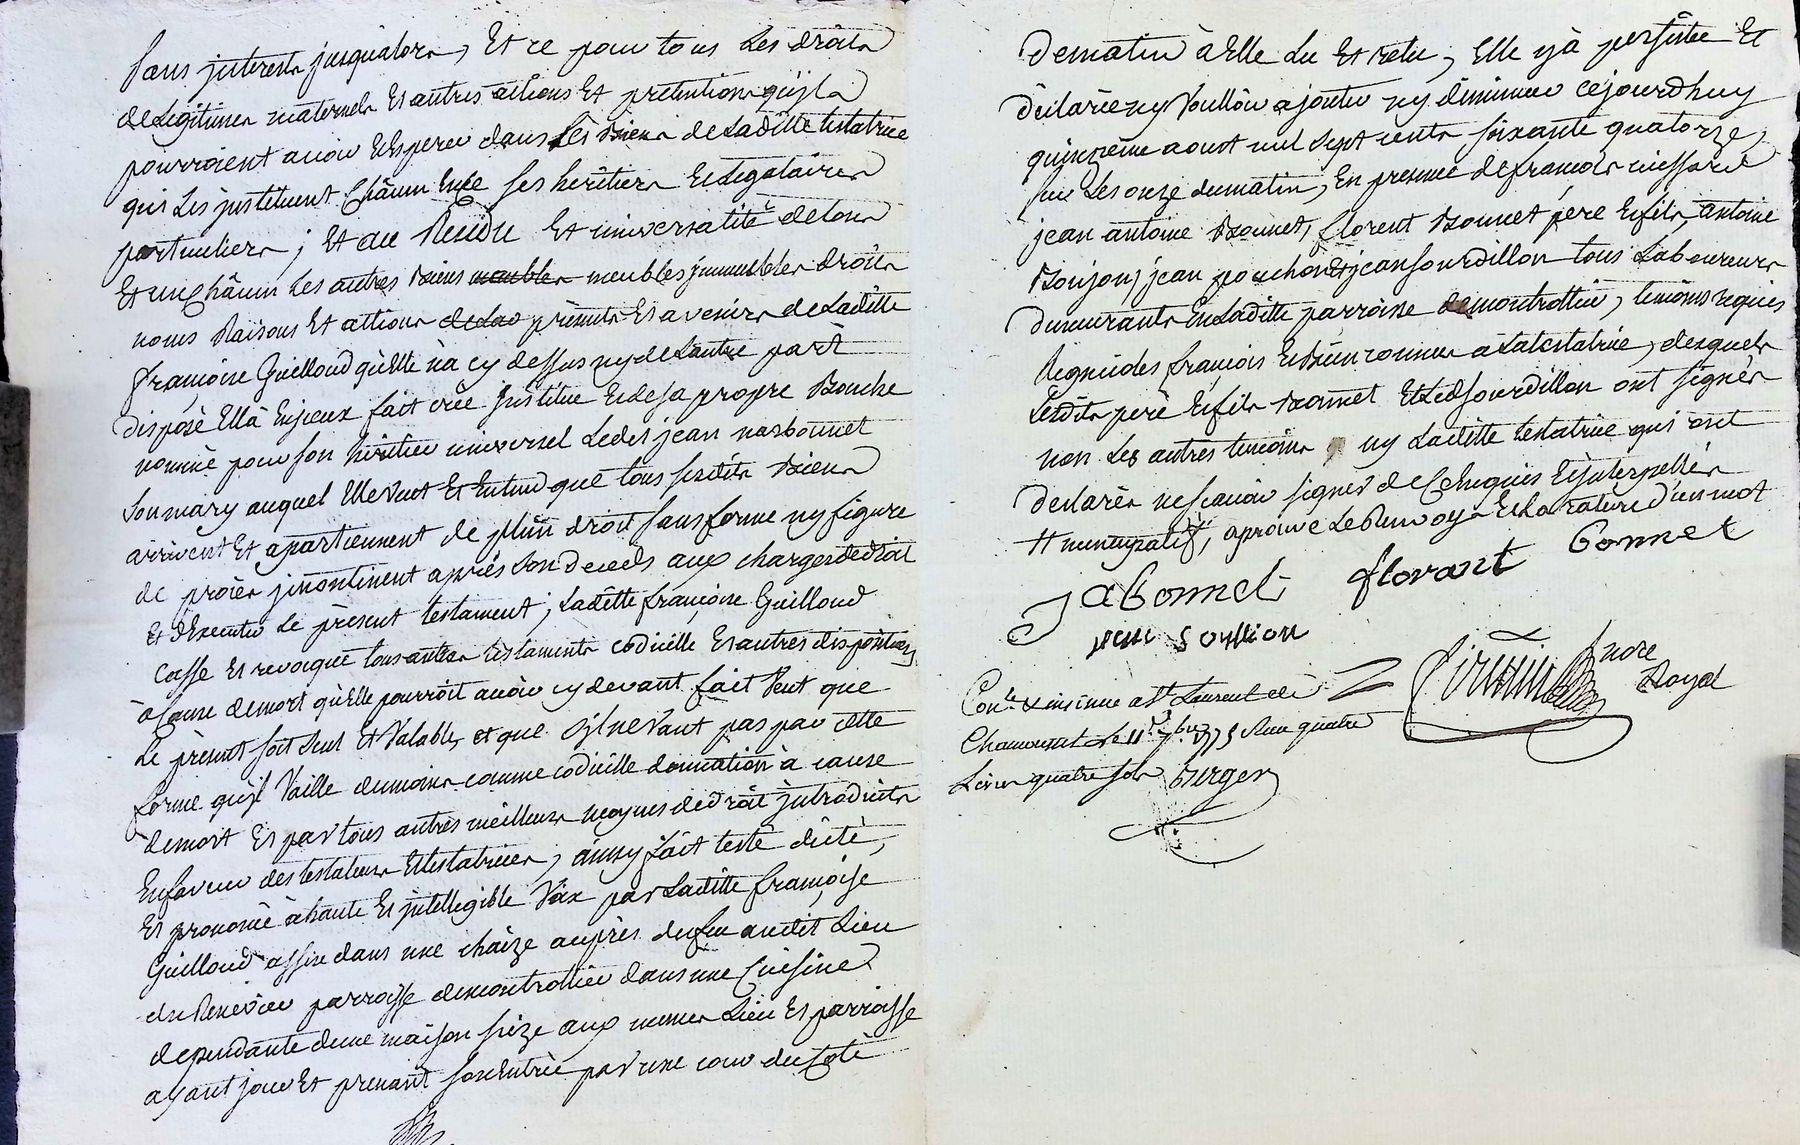 sans jnterests jusqualors, Et ce pour tous Les droits
de Legitimes maternels Et autres actions Et prétentions quils
pourroient avoir Et Esperer dans Les Biens de Laditte testatrice
qui Les jnstituent Châcun Ence ses heritiers Et Legataires
particuliers; Et au Residu Et universalité de tous
Et un Châcun Les autres Biens meubles meubles jmmeubles droits
noms Raisons Et actions de Lad presents Et avenirs de Laditte
françoise Guilloud quElle n'a cy dessus ny de Lautre part
disposé Ella Enjceux fait crée jnstitue Et de sa propre Bouche
nommé pour son héritier universel Ledit jean narbonnet
son mary auquel Elle veut Et Entend que tous sesdits Biens
arrivent Et apartiennent de plein droit sans forme ny figure
de procès jncontinent après son decedz aux charges dedroit
Et dExecuter Le présent testament; Laditte françoise Guilloud
Casse Et revoque tous autres testaments codicille Et autres dispositions
à Cause de mort quElle pourroit avoir cy devant fait Veut que
Le présent soit seul Et Valable, et que sil ne Vaut pas par cette
forme quil Vaille dumoins comme codicille donnation à cause
demort Et par tous autres meilleurs moyens de droit jntroduits
En faveur des testateurs Et testatrices, ainsy fait testé dicté,
Et prononcé à haute Et jntellegible Voix par Laditte françoise
Guilloud assise dans une chaize auprès dufeu audit Lieu
du Renevier parroisse demontrottier dans une Cuisine
dependante dune maison size aux memes Lieu Et parroisse
ayant jour Et prenant son Entrée par une cour du Coté
dematin à Elle Lu Et relu, Elle y à persistée Et
déclarée ny Vouloir ajouter ny diminuer cejourdhuy
quinzième aoust mil sept cents soixante quatorze,
sur Les onze dumatin, En presence de françois
jean antoine Bonnet, florent Bonnet père Et fils, antoine
Boujon, jean pouchon Et jean sourdillon tous Laboureurs
demeurants En Laditte parroisse demontrottier, temoins requis
Regnicoles françois Et Bien connus a Latestatrice, desquels
Lesdits père Et fils Bonnet Et Led sourdillon ont signés
non Les autres temoins ny Laditte testatrice qui ont
declarés ne sçavoir signer de ce Enquis Et jnterpellés
nuncupatif, aprouve Le Renvoy Et La rature d'un mot
J a Bonnet florant bonnet
Con.le & insinué a St Laurent de
Chamousset Le 11e 7bre 1775 Recu quatre
Livres quatre sols Burger
nore
Royal